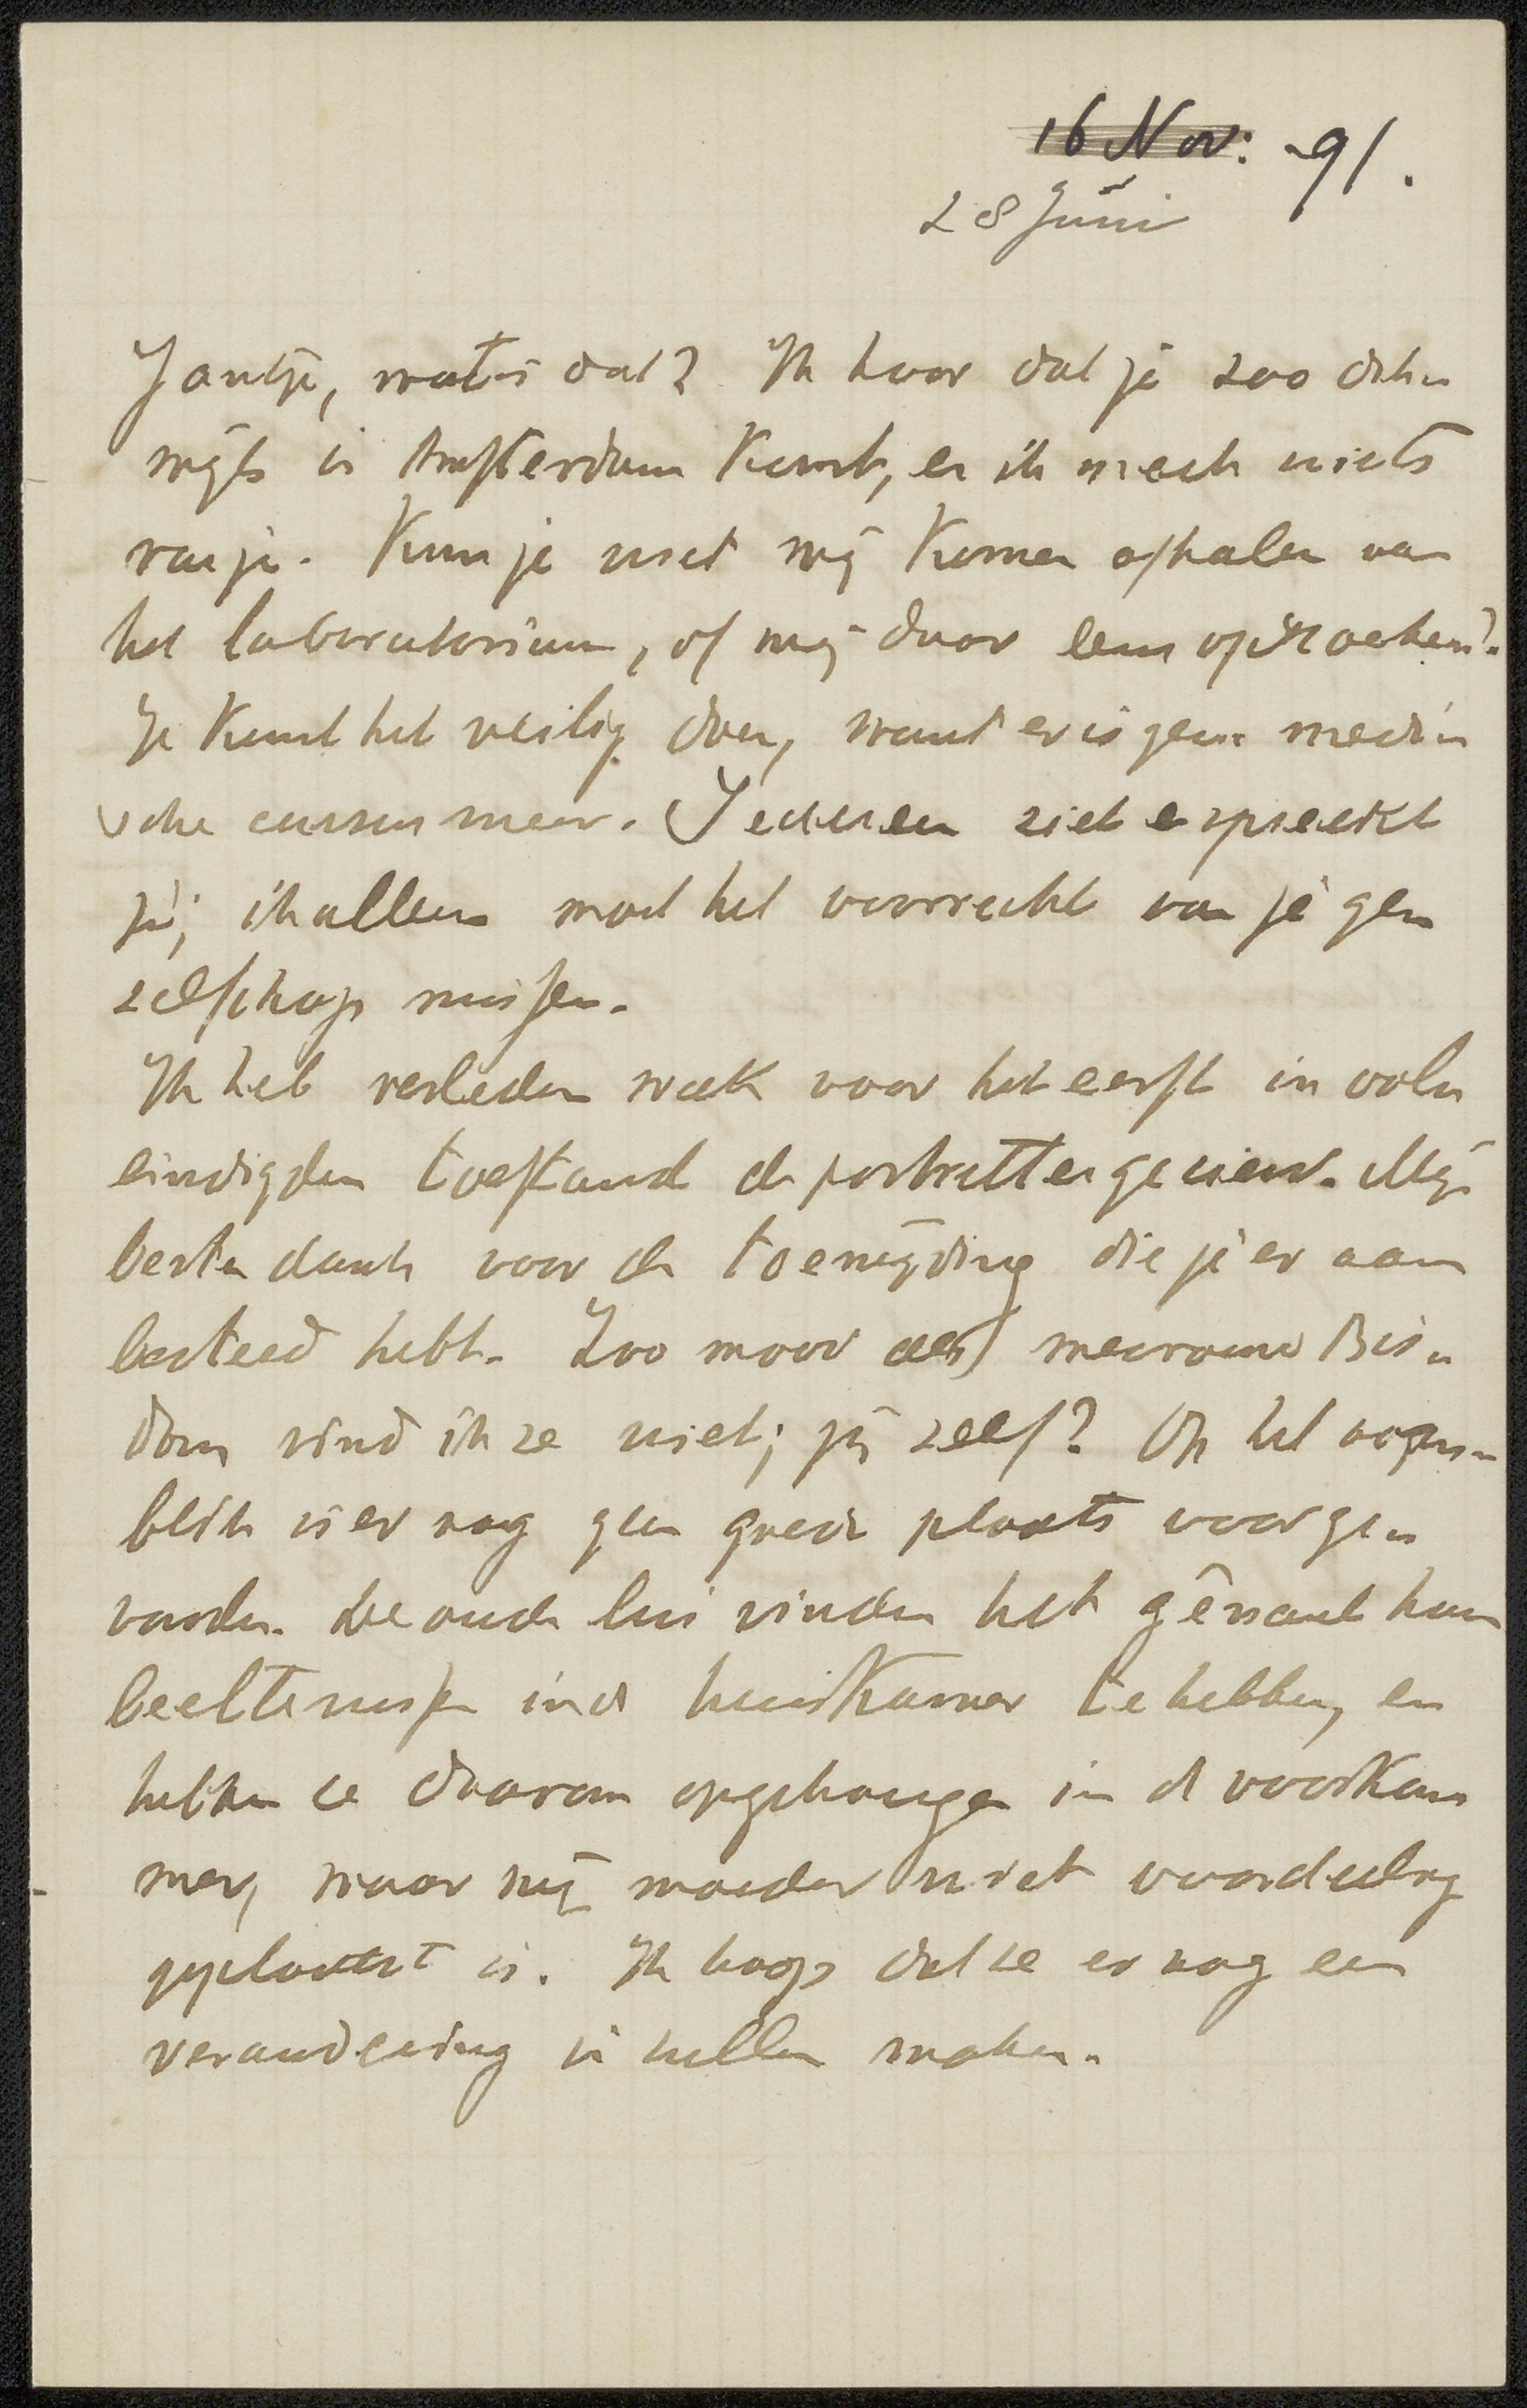 ~~16 Nov:~~ -91.
28 Juni
Jantje, wat is dat? Ik hoor dat je zoo dik-
wijls in Amsterdam komt, en ik merk niets
van je. Kun je niet mij komen afhalen van
het laboratorium, of mij daar eens opzoeken?
Je kunt het veilig doen, want er is geen medi-
sche cursus meer. Iedereen ziet en spreekt
je; ik alleen moet het voorrecht van je ge-
zelschap missen.
Ik heb verleden week voor het eerst in vol-
eindigden toestand de portretten gezien. Mijn
besten dank voor de toewijding die je er aan
besteed hebt. Zoo mooi als mevrouw Bis-
dom vind ik ze niet; jij zelf? Op het oogen-
blik is er nog geen goede plaats voor ge-
vonden. De oude lui vinden het gênant hun
beeltenissen in de huiskamer te hebben, en
hebben ze daarom opgehangen in de voorkam-
mer, waar mijn moeder niet voordeelig
geplaatst is. Ik hoop dat ze er nog een
verandering in zullen maken.